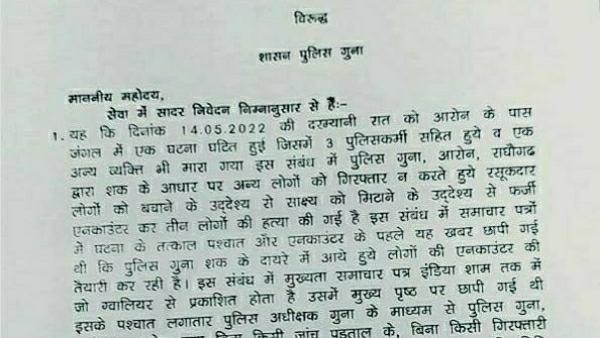 विरूद्ध
शासन पुलिस गुना
माननीय महोदय,
सेवा में सादर निवेदन निम्नानुसार से है:-
1. यह कि दिनांक 14.05.2022 की दरम्यानी रात को आरोन के पास
जंगल में एक घटना घटित हुई जिसमें 3 पुलिसकर्मी सहित हुये व एक
अन्य व्यक्ति भी मारा गया इस संबंध में पुलिस गुना, आरोन, राघौगढ
द्वारा शक के आधार पर अन्य लोगों को गिरफ्तार न करते हुये रसूकदार
लोगों को बचाने के उद्देश्य से साक्ष्य को मिटाने के उद्देश्य से फर्जी
एनकाउंटर कर तीन लोगों की हत्या की गई है इस संबंध में समाचार पत्रों
में घटना के तत्काल पश्चात और एनकाउंटर के पहले यह खबर छापी गई
थी कि पुलिस गुना शक के दायरे में आये हुये लोगों की एनकाउंटर की
तैयारी कर रही है। इस संबंध में मुख्यता समाचार पत्र इंडिया शाम तक में
जो ग्वालियर से प्रकाशित होता है उसमें मुख्य पृष्ठ पर छापी गई थी
इसके पश्चात लगातार पुलिस अधीक्षक गुना के माध्यम से पुलिस गुना,
किसी जांच पडताल के, बिना किसी गिरफ्तारी